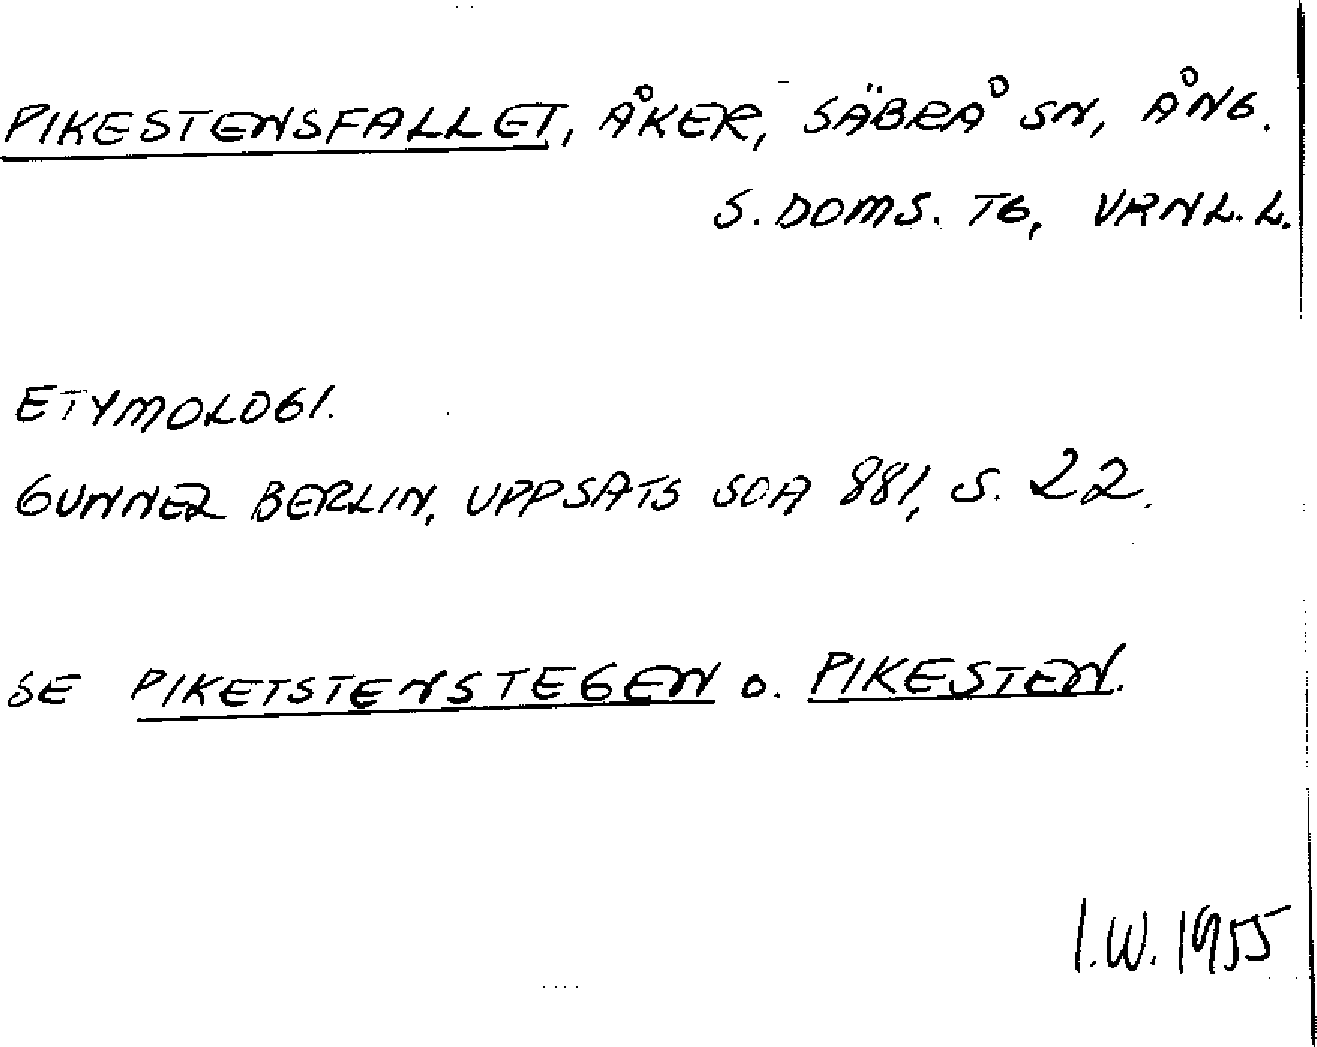 PIKESTENSFALLET, ÅKER, SÄBRÅ SN, ÅNG.
S. DOMS. TG, VRNL. L.
ETYMOLOGI.
GUNNER BERLIN, UPPSATS SOA 881, S. 22.
SE PIKETSTENSTEGEN O. PIKESTEN.
I.W. 1955